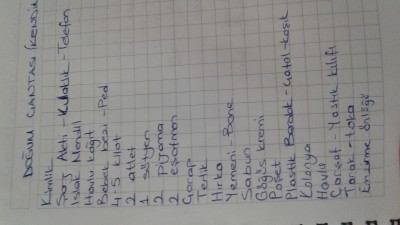 DOĞUM ÇANTASI (KENDİM
Kimlik
Şarj Aleti - Kulaklık - Telefon
Islak Mendil
Havlu kağıt
Bebek bezi - Ped
4-5 kilot
2 atlet
1 sütyen
2 pijama
2 eşofman
Çorap
Terlik
Hırka
Yemeni - Bone
Sabun
Göğüs kremi
Poşet
Plastik Bardak - Çatal - kaşık
Kolonya
Havlu
Çarşaf - Yastık kılıfı
Tarak - toka
Emzirme önlüğü